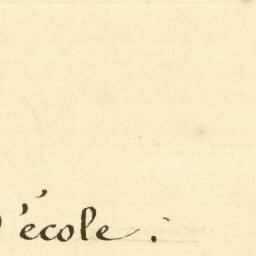 'école.